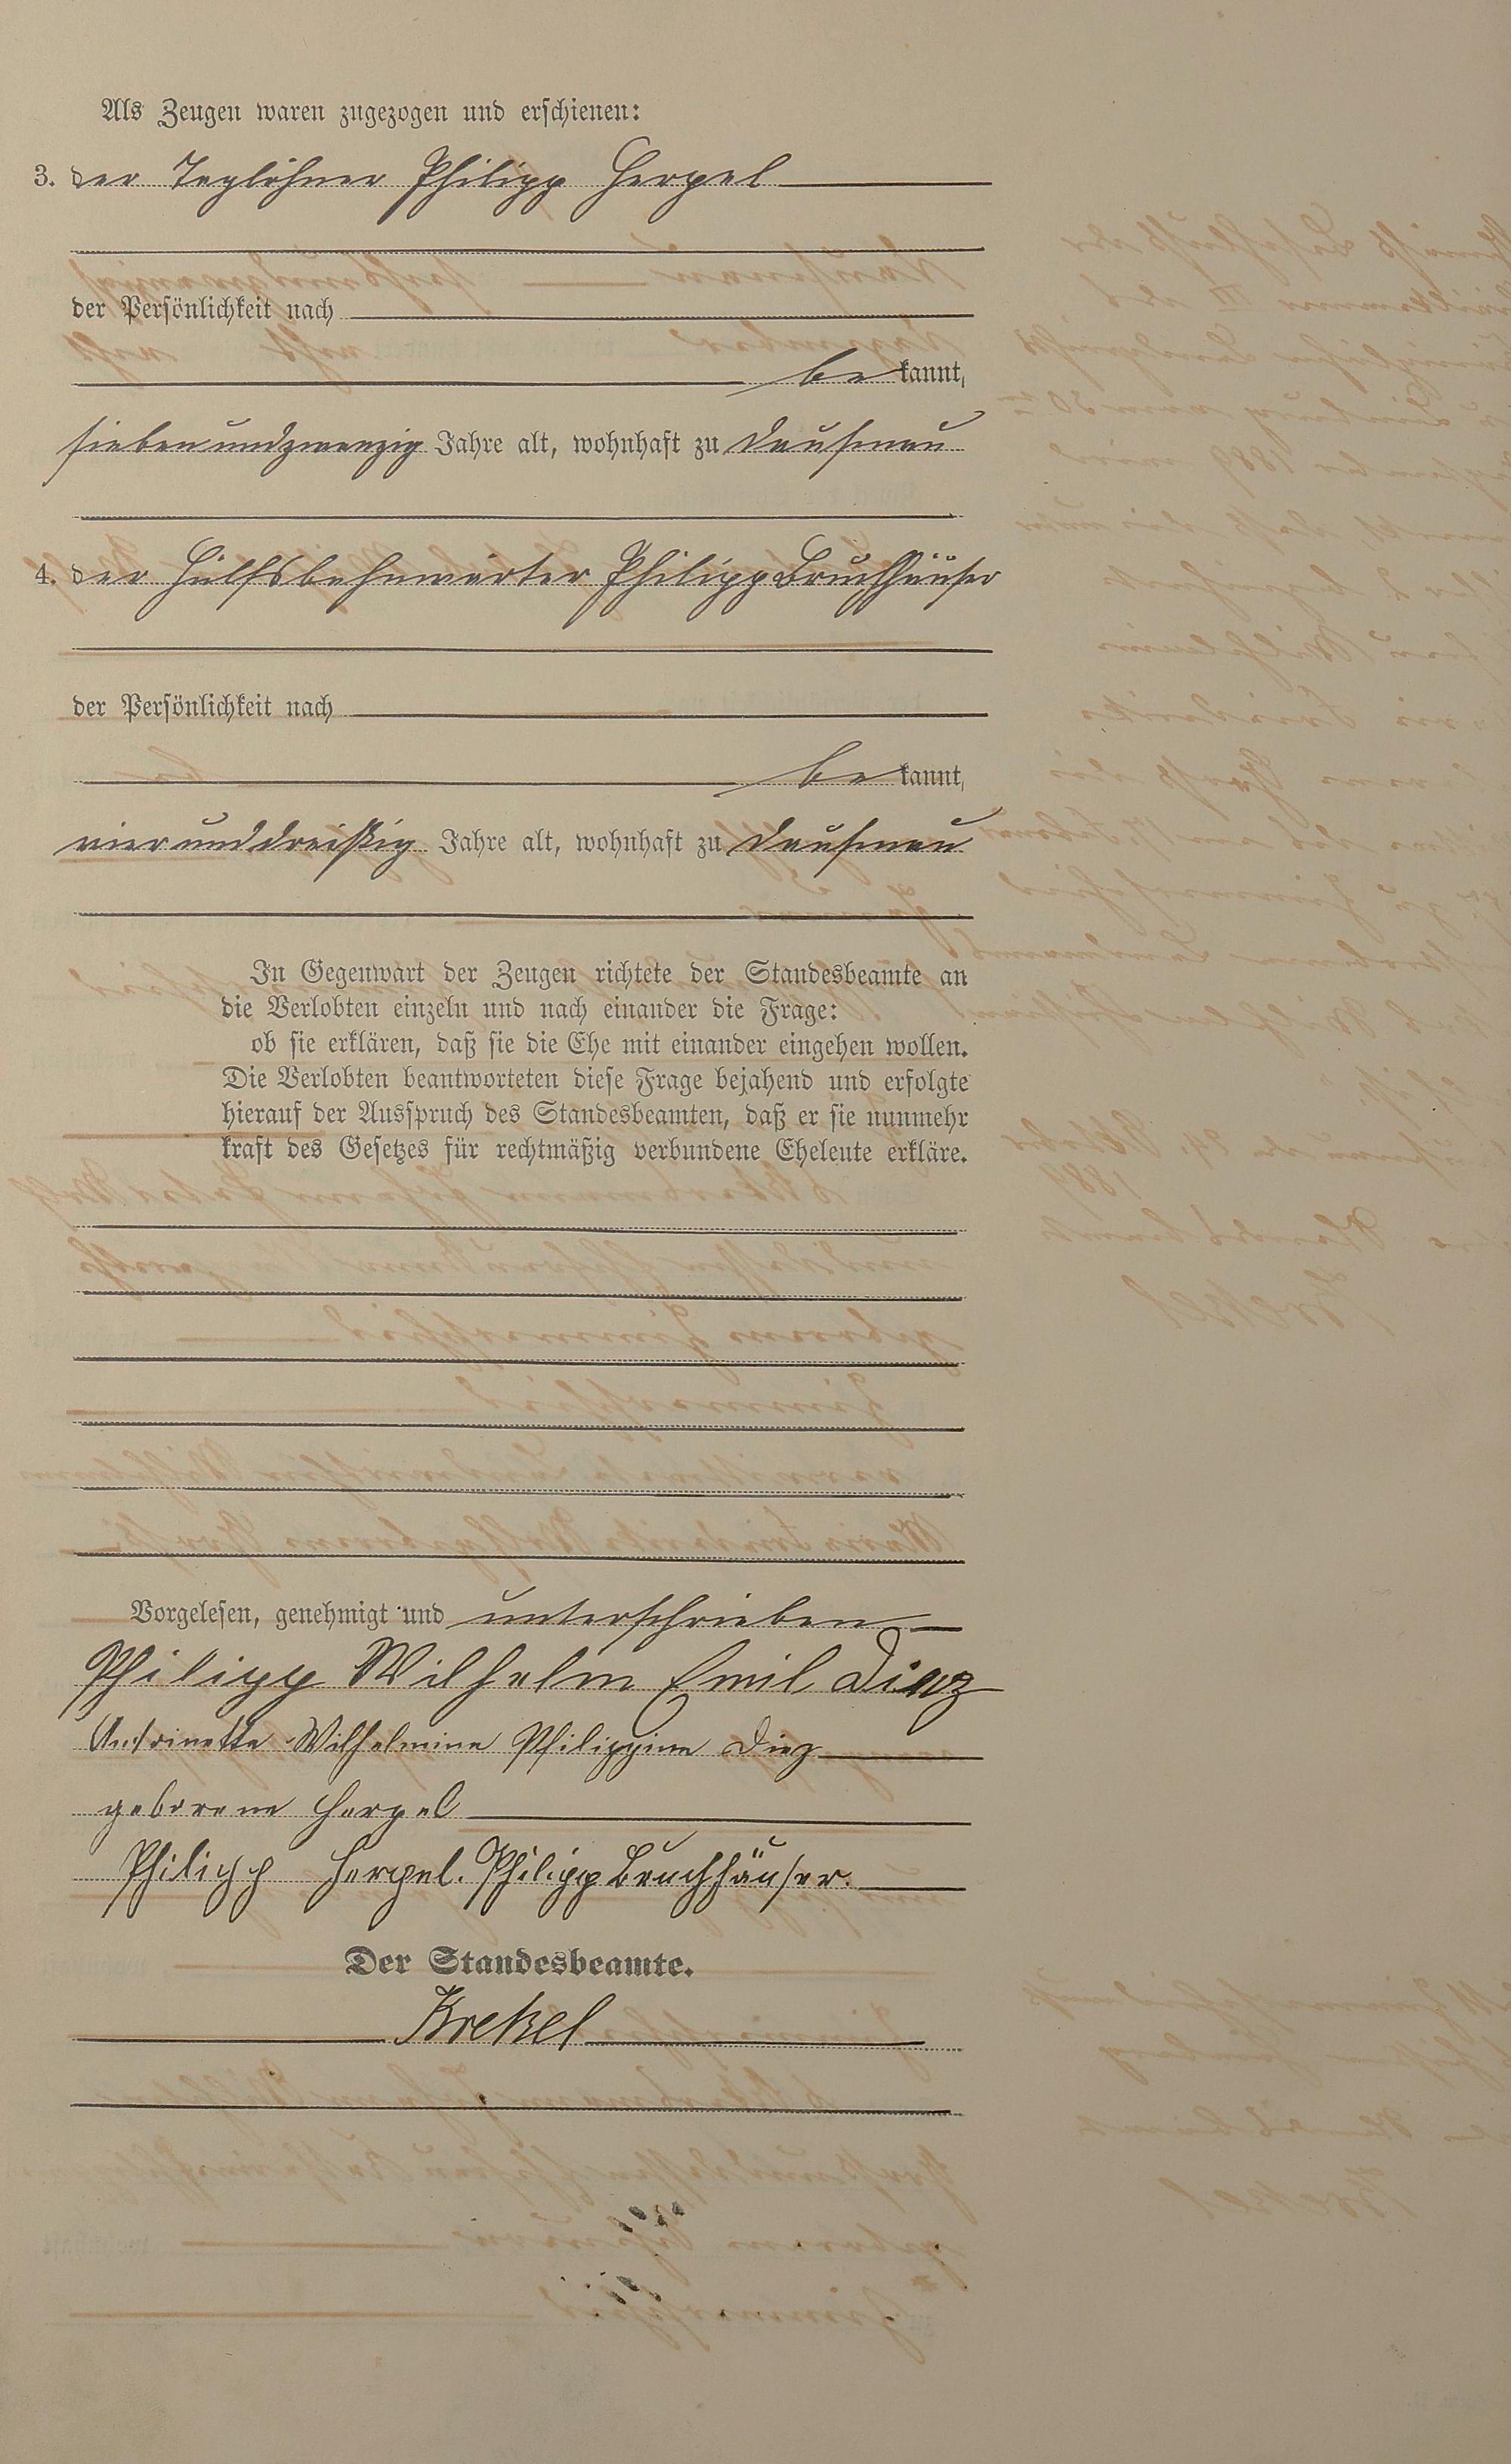 Als Zeugen waren zugezogen und erschienen:
3. der Taglöhner Philipp Herpel
der Persönlichkeit nach
be kannt,
siebenundzwanzig Jahre alt, wohnhaft zu Dausenau
4. der Hülfsbahnwärter Philipp Bruchhäuser
der Persönlichkeit nach
be kannt,
vierunddreißig Jahre alt, wohnhaft zu Dausenau
In Gegenwart der Zeugen richtete der Standesbeamte an
die Verlobten einzeln und nach einander die Frage:
ob sie erklären, daß sie die Ehe mit einander eingehen wollen.
Die Verlobten beantworteten diese Frage bejahend und erfolgte
hierauf der Ausspruch des Standesbeamten, daß er sie nunmehr
kraft des Gesetzes für rechtmäßig verbundene Eheleute erkläre.
Vorgelesen, genehmigt und unterschrieben
Philipp Wilhelm Emil Diez
Antoinette Wilhelmine Philippine Diez
geborene Herpel
Philipp Herpel. Philipp Bruchhäuser.
Der Standesbeamte.
Krekel